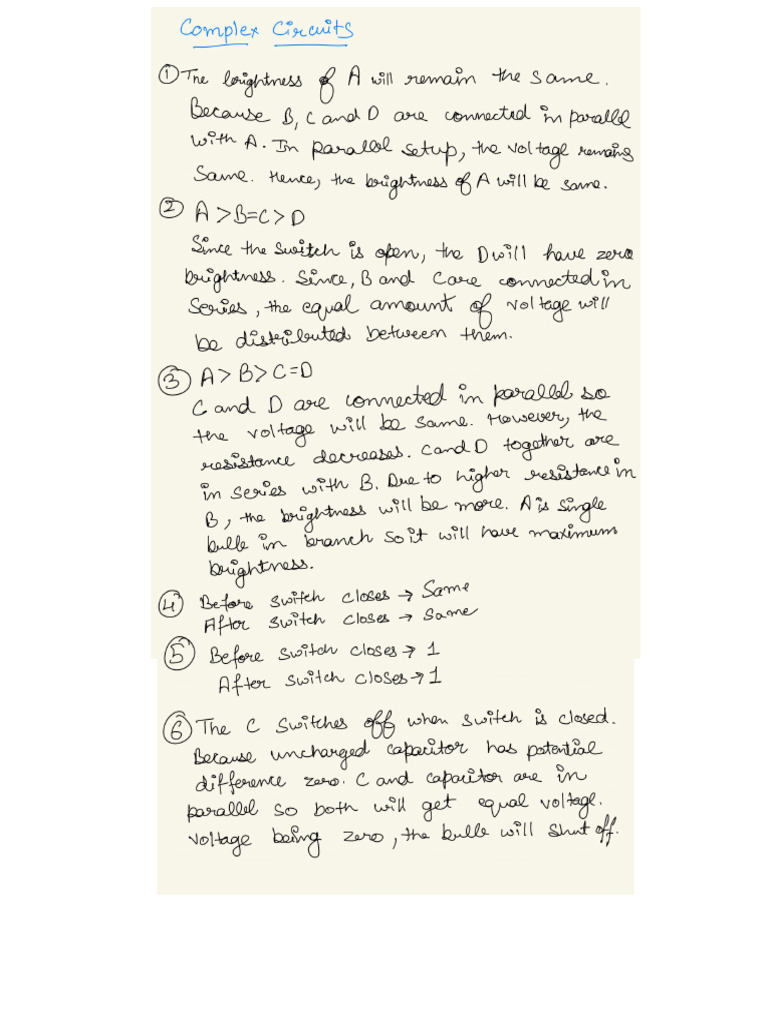 Complex Circuits
① The brightness of A will remain the same.
Because B, C and D are connected in parallel
with A. In parallel setup, the voltage remains
same. Hence, the brightness of A will be same.
② A > B = C > D
Since the switch is open, the D will have zero
brightness. Since, B and C are connected in
series, the equal amount of voltage will
be distributed between them.
③ A > B > C = D
C and D are connected in parallel so
the voltage will be same. However, the
resistance decreases. C and D together are
in series with B. Due to higher resistance in
B, the brightness will be more. A is single
bulb in branch so it will have maximum
brightness.
④ Before switch closes → Same
After switch closes → same
⑤ Before switch closes → 1
After switch closes → 1
⑥ The C switches off when switch is closed.
Because uncharged capacitor has potential
difference zero. C and capacitor are in
parallel so both will get equal voltage.
Voltage being zero, the bulb will shut off.